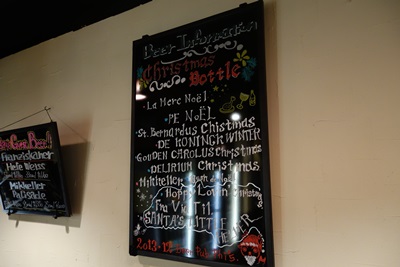 Beer Information
Christmas
Bottle
La Mere Noël
PE NOËL
St. Bernardus Chistmas
DE KONINCK WINTER
GOUDEN CAROLUS Christmas
DELIRIUM Christmas
Mikkeller
Hoppy Lovin Christmas
Fra Via Til
SANTA'S LITTLE
HELPER
2013.12 Beer Pub
Beer!
Franziskaner
Hefe Weiss
Mikkeller